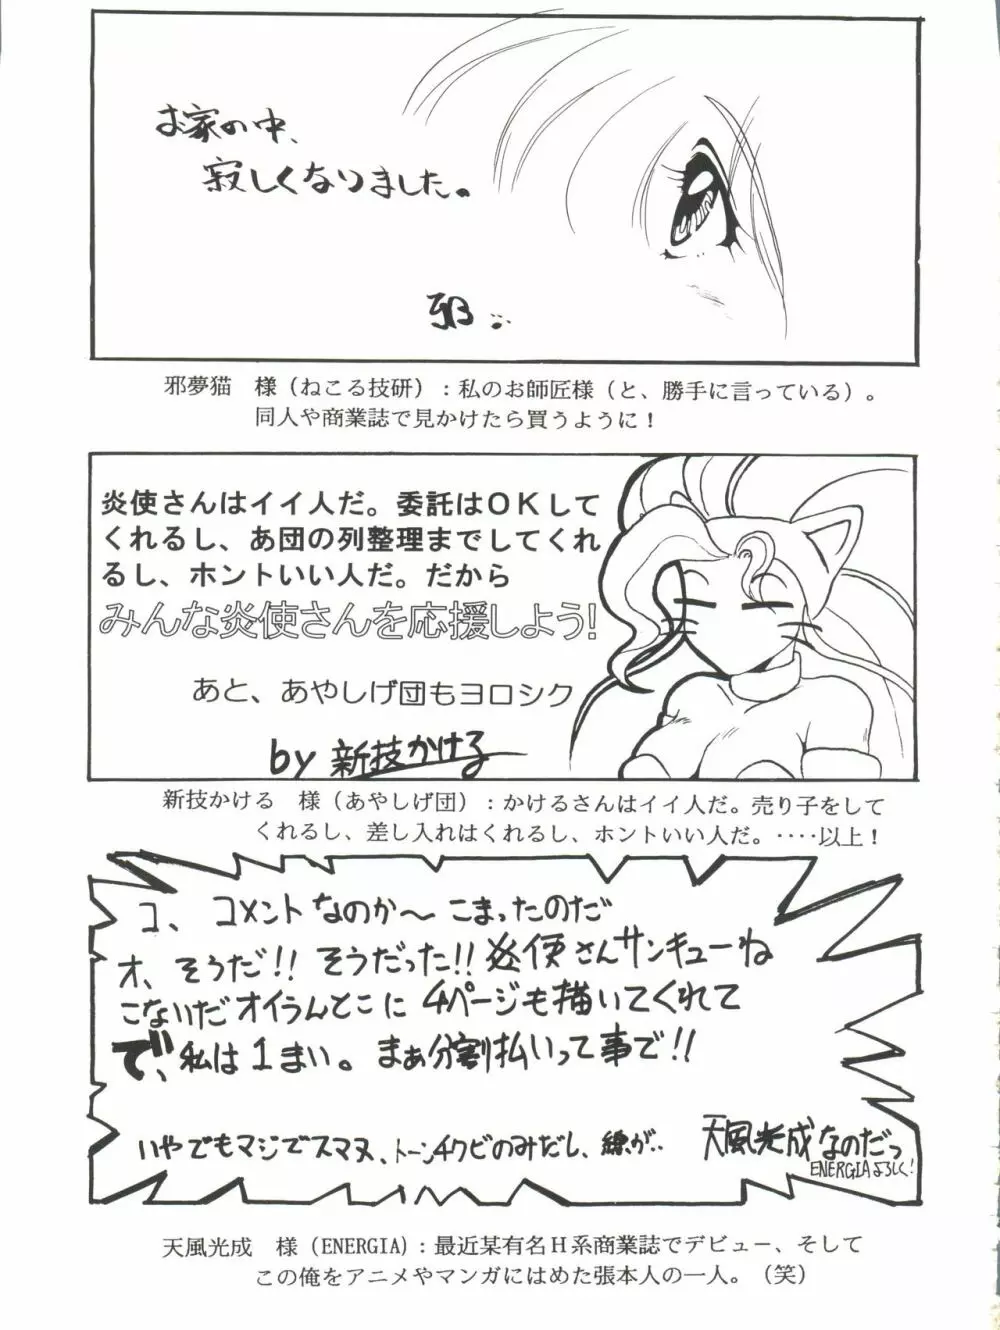 お家の中、
寂しくなりました。
邪夢猫　様（ねこる技研）：私のお師匠様（と、勝手に言っている）。
同人や商業誌で見かけたら買うように！
炎使さんはイイ人だ。委託はＯＫして
くれるし、あ団の列整理までしてくれ
るし、ホントいい人だ。だから
みんな炎使さんを応援しよう！
あと、あやしげ団もヨロシク
by 新技かける
新技かける　様（あやしげ団）：かけるさんはイイ人だ。売り子をして
くれるし、差し入れはくれるし、ホントいい人だ。‥‥以上！
コ、コメントなのか〜こまったのだ
オ、そうだ!! そうだった!! 炎使さんサンキューね
こないだオイらんとこに4ページも描いてくれて
で、私は1まい。まぁ分割払いって事で!!
いやでもマジでスマヌ、トーンチクビのみだし、線が‥
天風光成なのだっ
ENERGIAよろしく!
天風光成　様（ENERGIA）：最近某有名Ｈ系商業誌でデビュー、そして
この俺をアニメやマンガにはめた張本人の一人。（笑）